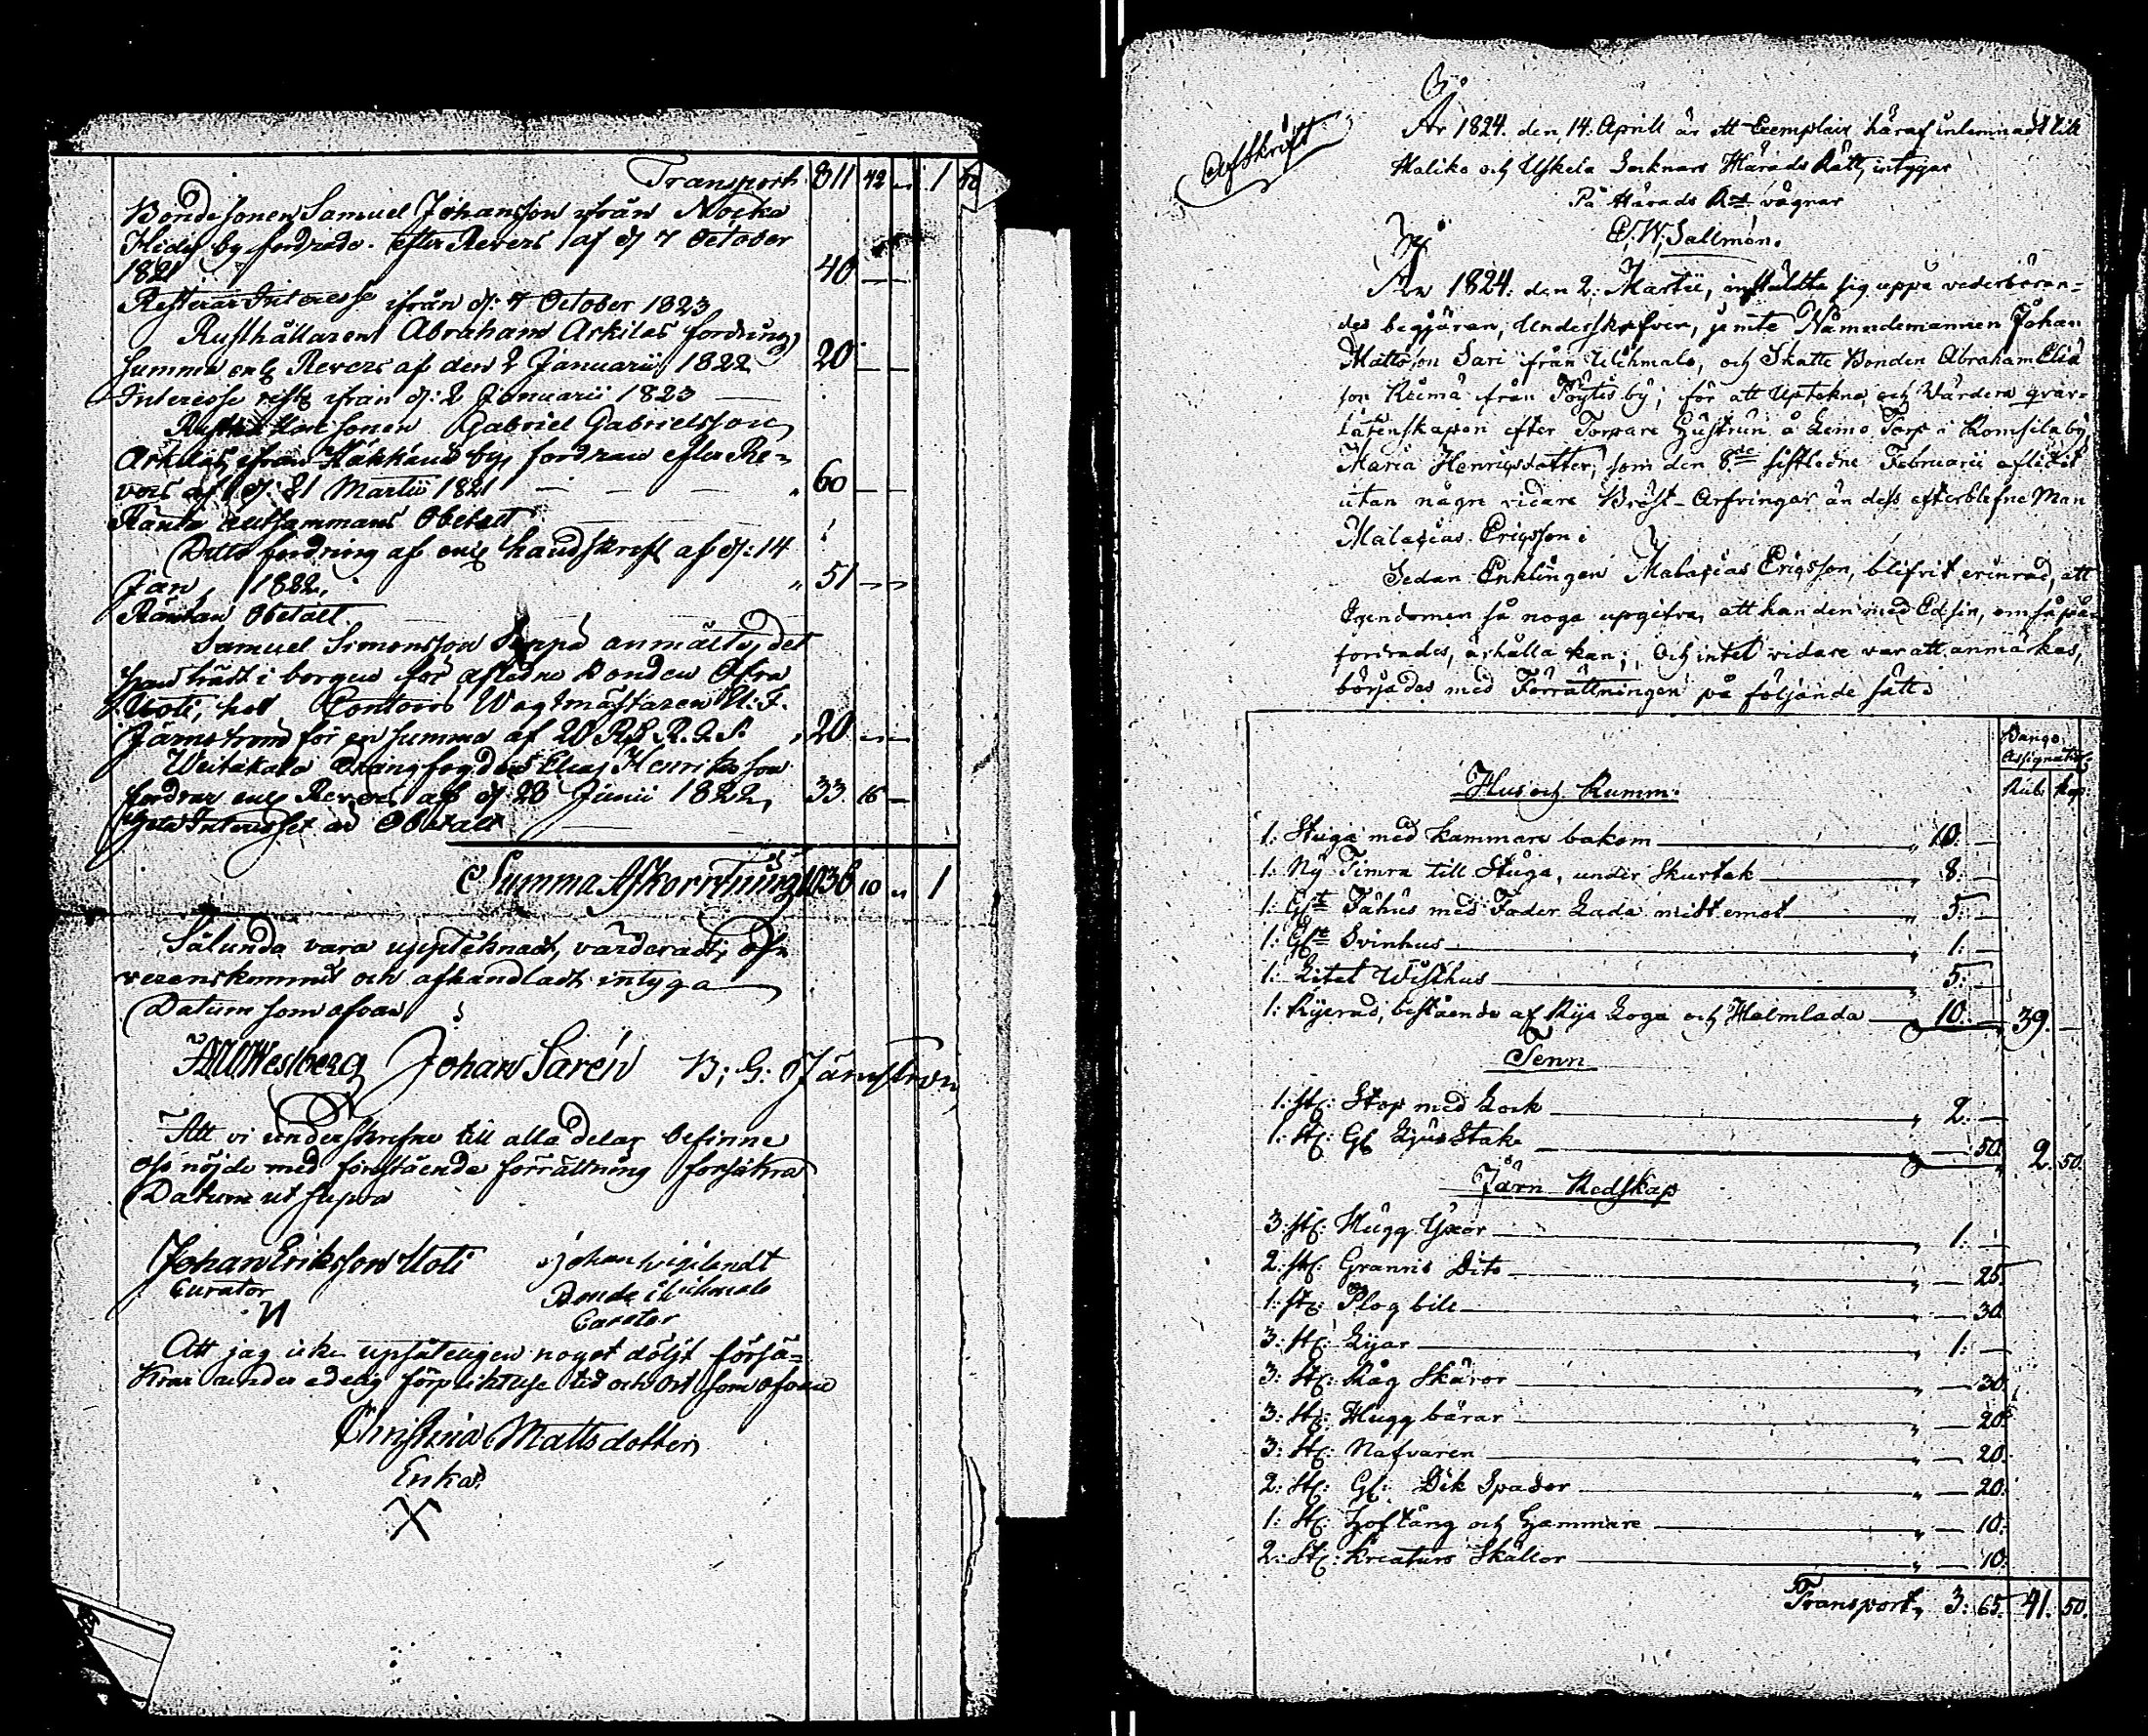 Transport 811 42 " 1 40
Bondesonen Samuel Johansson ifrån Nocka
Hidis by fordrade efter Revers af d. 7 October
1821 40 — —
Resterar Interesse ifrån d: 7 October 1823
Rusthållaren Abraham Arkilas fordring
summa enl Revers af den 2 Januarii 1822 20 — —
Interesse rest ifrån d: 2 Januarii 1823 —
sonen Gabriel Gabrielsson
Arkilas, ifrån by, fordrar efter Re-
vers af d: 21 Martii 1821 — — — " 60 — —
Ränta altsammans Obetalt
Ditto fordring af enl handskrift af d: 14
Jan, 1822, " 51 — —
Räntan Obetalt.
Samuel Simonsson Seppä anmälte, det
han trädt i borgen för aflidne Bonden
Uoti, hos Contoirs Wagtmästaren
Järnström för en summa af 20 " 20 — —
Drängfogden Elias Henriksson
fordrar enl Revers af d 28 Junii 1822, 33 16 —
Interesset är Obetalt
Summa Afkortning 1036 10 " 1
Sålunda vara upptecknadt, värderadt, öf-
verenskommit och afhandladt intyga
Datum som ofvan
Westberg Johan Sarén B: G: Jämström
Att vi underskrefne till alla delar befinne
oss nöjde med förestående förrättning försäkra
Datum ut supra
Johan Eriksson Uoti Johan
Curator Bonde i Uichmalo
Curator
Att jag icke upsåteligen noget döljt försä-
krar under edelig förpliktelse tid och ort som ofvan
Christina Mattsdotter
Enka
X
Afskrift
År 1824. den 14. Aprill är ett Exemplair häraf inlemnadt till
Haliko och Uskela Socknars Härads Rätt, intygar
På Härads Rns vägnar
C. W. Sallmén.
År 1824. den 2. Martii, instälte sig uppå vederböran-
des begjäran, Underskrefven, jemte Nämndemannen Johan
Mattsson Sari ifrån Uichmalo, och Skatte Bonden Abraham Elias
son Reima från Pöytis by; för att Uptekna och Värdera qvar-
låtenskapen efter Torpare Hustrun å Leimo Torp i Romsila by
Maria Henrigsdotter; som den 8de sistledne Februarii aflidit
utan några vidare Bröst-Arfvingar än dess efterblefne Man
Malaqias Erigsson:
Sedan Enklingen Malaqias Erigsson, blifvit erinrad, att
Egendomen så noga upgifva, att han den med Ed sin, om så på-
fordrades, ärhålla kan; Och intet vidare var att anmärkas,
börjades med Förrättningen på följande sätt:
Banco
Assignat.
Rub. Kop.
Hus och Rumm:
1: Stuga med Kammare bakom — " 10. —
1: Ny Timra till Stuga, under Skurtak — " 8. —
1: Glt Fähus med Foder Lada mitt emot — " 5. —
1: Glt Svinhus — " 1. —
1: Litet Wisthus — " 5. —
1: Ryerad, bestående af Rye Loga och Halmlada — 10. — 39. —
Tenn
1: st: Stop med Lock — " 2. —
1: st: Gl Ljus Stake — " — 50. 2. 50.
Järn Redskap
3: st: Hugg Yxor — " 1. —
2: st: Granris Dito — " — 25.
1: st: Plog bile — " — 30.
3: st: Lijar — " 1. —
3: st: Råg Skäror — " — 30.
3: st: Hugg bärar — " — 20.
3: st: Nafvaren — " — 20.
2: st: Gl: Dik Spader — " — 20.
1: st: Hoftång och Hammare — " — 10.
2: st: Kreaturs Skällor — " — 10.
Transport, 3. 65. 41. 50.